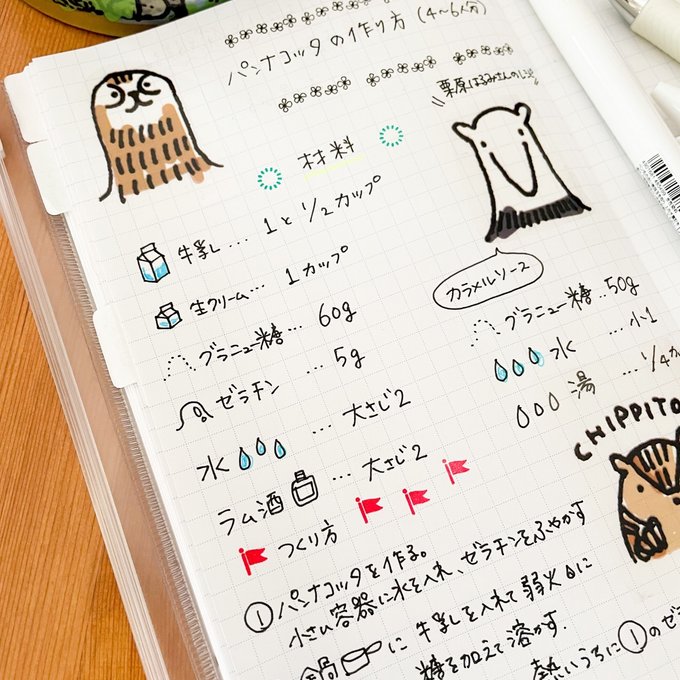 パンナコッタの作り方 (4〜6人分)
栗原はるみさんのレシピ
材料
牛乳… 1と1/2カップ
生クリーム… 1カップ
グラニュー糖… 60g
ゼラチン … 5g
水 … 大さじ2
ラム酒 … 大さじ2
カラメルソース
グラニュー糖…50g
水 …小1
湯 …1/4カ
CHIPPITO
つくり方
① パンナコッタを作る。
小さい容器に水を入れ、ゼラチンをふやかす
鍋に牛乳を入れて弱火に
糖を加えて溶かす.
熱いうちに①のゼ